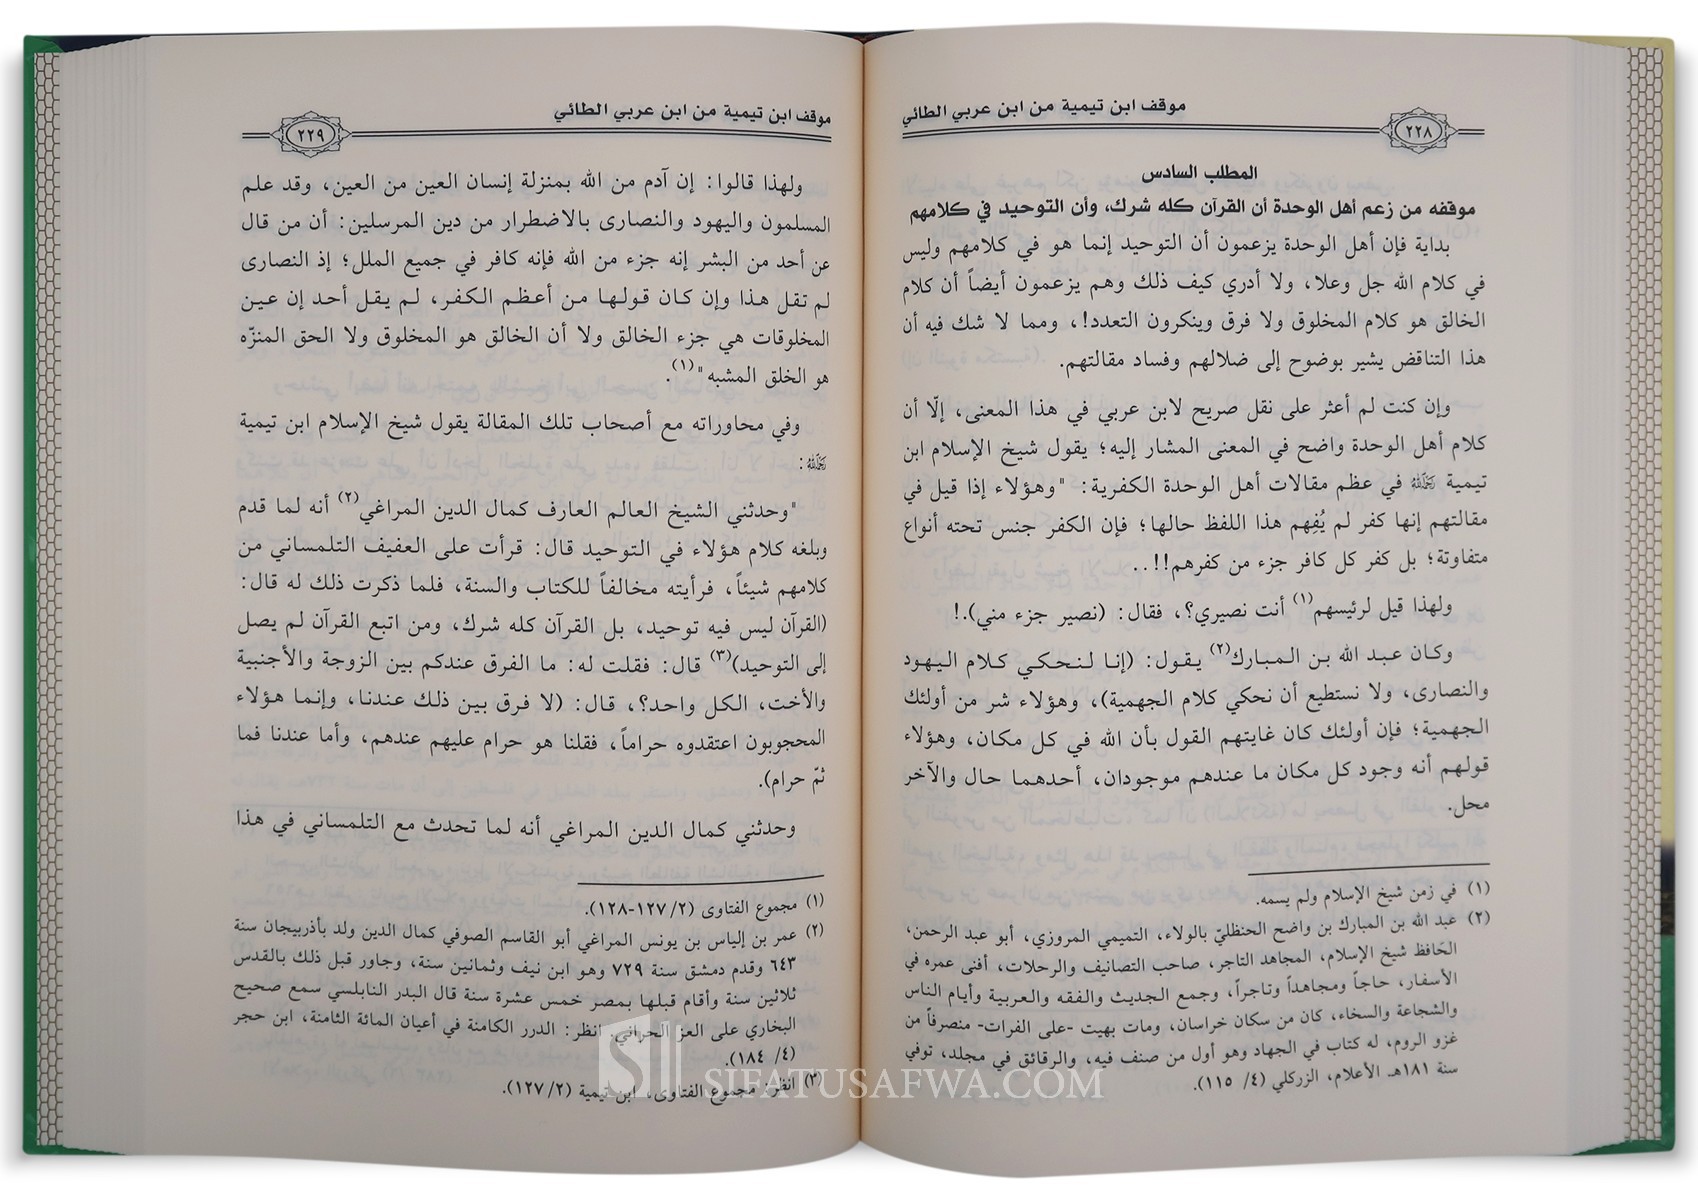 موقف ابن تيمية من ابن عربي الطائي
٢٢٨
المطلب السادس
موقفه من زعم أهل الوحدة أن القرآن كله شرك، وأن التوحيد في كلامهم
بداية فإن أهل الوحدة يزعمون أن التوحيد إنما هو في كلامهم وليس
في كلام الله جل وعلا، ولا أدري كيف ذلك وهم يزعمون أيضاً أن كلام
الخالق هو كلام المخلوق ولا فرق وينكرون التعدد!، ومما لا شك فيه أن
هذا التناقض يشير بوضوح إلى ضلالهم وفساد مقالتهم.
وإن كنت لم أعثر على نقل صريح لابن عربي في هذا المعنى، إلّا أن
كلام أهل الوحدة واضح في المعنى المشار إليه؛ يقول شيخ الإسلام ابن
تيمية رَحِمَهُ اللهُ في عظم مقالات أهل الوحدة الكفرية: "وهؤلاء إذا قيل في
مقالتهم إنها كفر لم يُفهِم هذا اللفظ حالها؛ فإن الكفر جنس تحته أنواع
متفاوتة؛ بل كفر كل كافر جزء من كفرهم!!..
ولهذا قيل لرئيسهم(١) أنت نصيري؟، فقال: (نصير جزء مني).!
وكان عبد الله بن المبارك(٢) يقول: (إنا لنحكي كلام اليهود
والنصارى، ولا نستطيع أن نحكي كلام الجهمية)، وهؤلاء شر من أولئك
الجهمية؛ فإن أولئك كان غايتهم القول بأن الله في كل مكان، وهؤلاء
قولهم أنه وجود كل مكان ما عندهم موجودان، أحدهما حال والآخر
محل.
(١) في زمن شيخ الإسلام ولم يسمه.
(٢) عبد الله بن المبارك بن واضح الحنظليّ بالولاء، التميمي المروزي، أبو عبد الرحمن،
الحَافظ شيخ الإسلام، المجاهد التاجر، صاحب التصانيف والرحلات، أفنى عمره في
الأسفار، حاجاً ومجاهداً وتاجراً، وجمع الحديث والفقه والعربية وأيام الناس
والشجاعة والسخاء، كان من سكان خراسان، ومات بهيت -على الفرات- منصرفاً من
غزو الروم، له كتاب في الجهاد وهو أول من صنف فيه، والرقائق في مجلد، توفي
سنة ١٨١هـ. الأعلام، الزركلي (٤/ ١١٥).
موقف ابن تيمية من ابن عربي الطائي
٢٢٩
ولهذا قالوا: إن آدم من الله بمنزلة إنسان العين من العين، وقد علم
المسلمون واليهود والنصارى بالاضطرار من دين المرسلين: أن من قال
عن أحد من البشر إنه جزء من الله فإنه كافر في جميع الملل؛ إذ النصارى
لم تقل هذا وإن كان قولها من أعظم الكفر، لم يقل أحد إن عين
المخلوقات هي جزء الخالق ولا أن الخالق هو المخلوق ولا الحق المنزّه
هو الخلق المشبه"(١).
وفي محاوراته مع أصحاب تلك المقالة يقول شيخ الإسلام ابن تيمية
رَحِمَهُ اللهُ:
"وحدثني الشيخ العالم العارف كمال الدين المراغي(٢) أنه لما قدم
وبلغه كلام هؤلاء في التوحيد قال: قرأت على العفيف التلمساني من
كلامهم شيئاً، فرأيته مخالفاً للكتاب والسنة، فلما ذكرت ذلك له قال:
(القرآن ليس فيه توحيد، بل القرآن كله شرك، ومن اتبع القرآن لم يصل
إلى التوحيد)(٣) قال: فقلت له: ما الفرق عندكم بين الزوجة والأجنبية
والأخت، الكل واحد؟، قال: (لا فرق بين ذلك عندنا، وإنما هؤلاء
المحجوبون اعتقدوه حراماً، فقلنا هو حرام عليهم عندهم، وأما عندنا فما
ثمّ حرام).
وحدثني كمال الدين المراغي أنه لما تحدث مع التلمساني في هذا
(١) مجموع الفتاوى (٢/ ١٢٧-١٢٨).
(٢) عمر بن إلياس بن يونس المراغي أبو القاسم الصوفي كمال الدين ولد بأذربيجان سنة
٦٤٣ وقدم دمشق سنة ٧٢٩ وهو ابن نيف وثمانين سنة، وجاور قبل ذلك بالقدس
ثلاثين سنة وأقام قبلها بمصر خمس عشرة سنة قال البدر النابلسي سمع صحيح
البخاري على العز الحراني. انظر: الدرر الكامنة في أعيان المائة الثامنة، ابن حجر
(٤/ ١٨٤).
(٣) انظر: مجموع الفتاوى، ابن تيمية (٢/ ١٢٧).
SIFATUSAFWA.COM